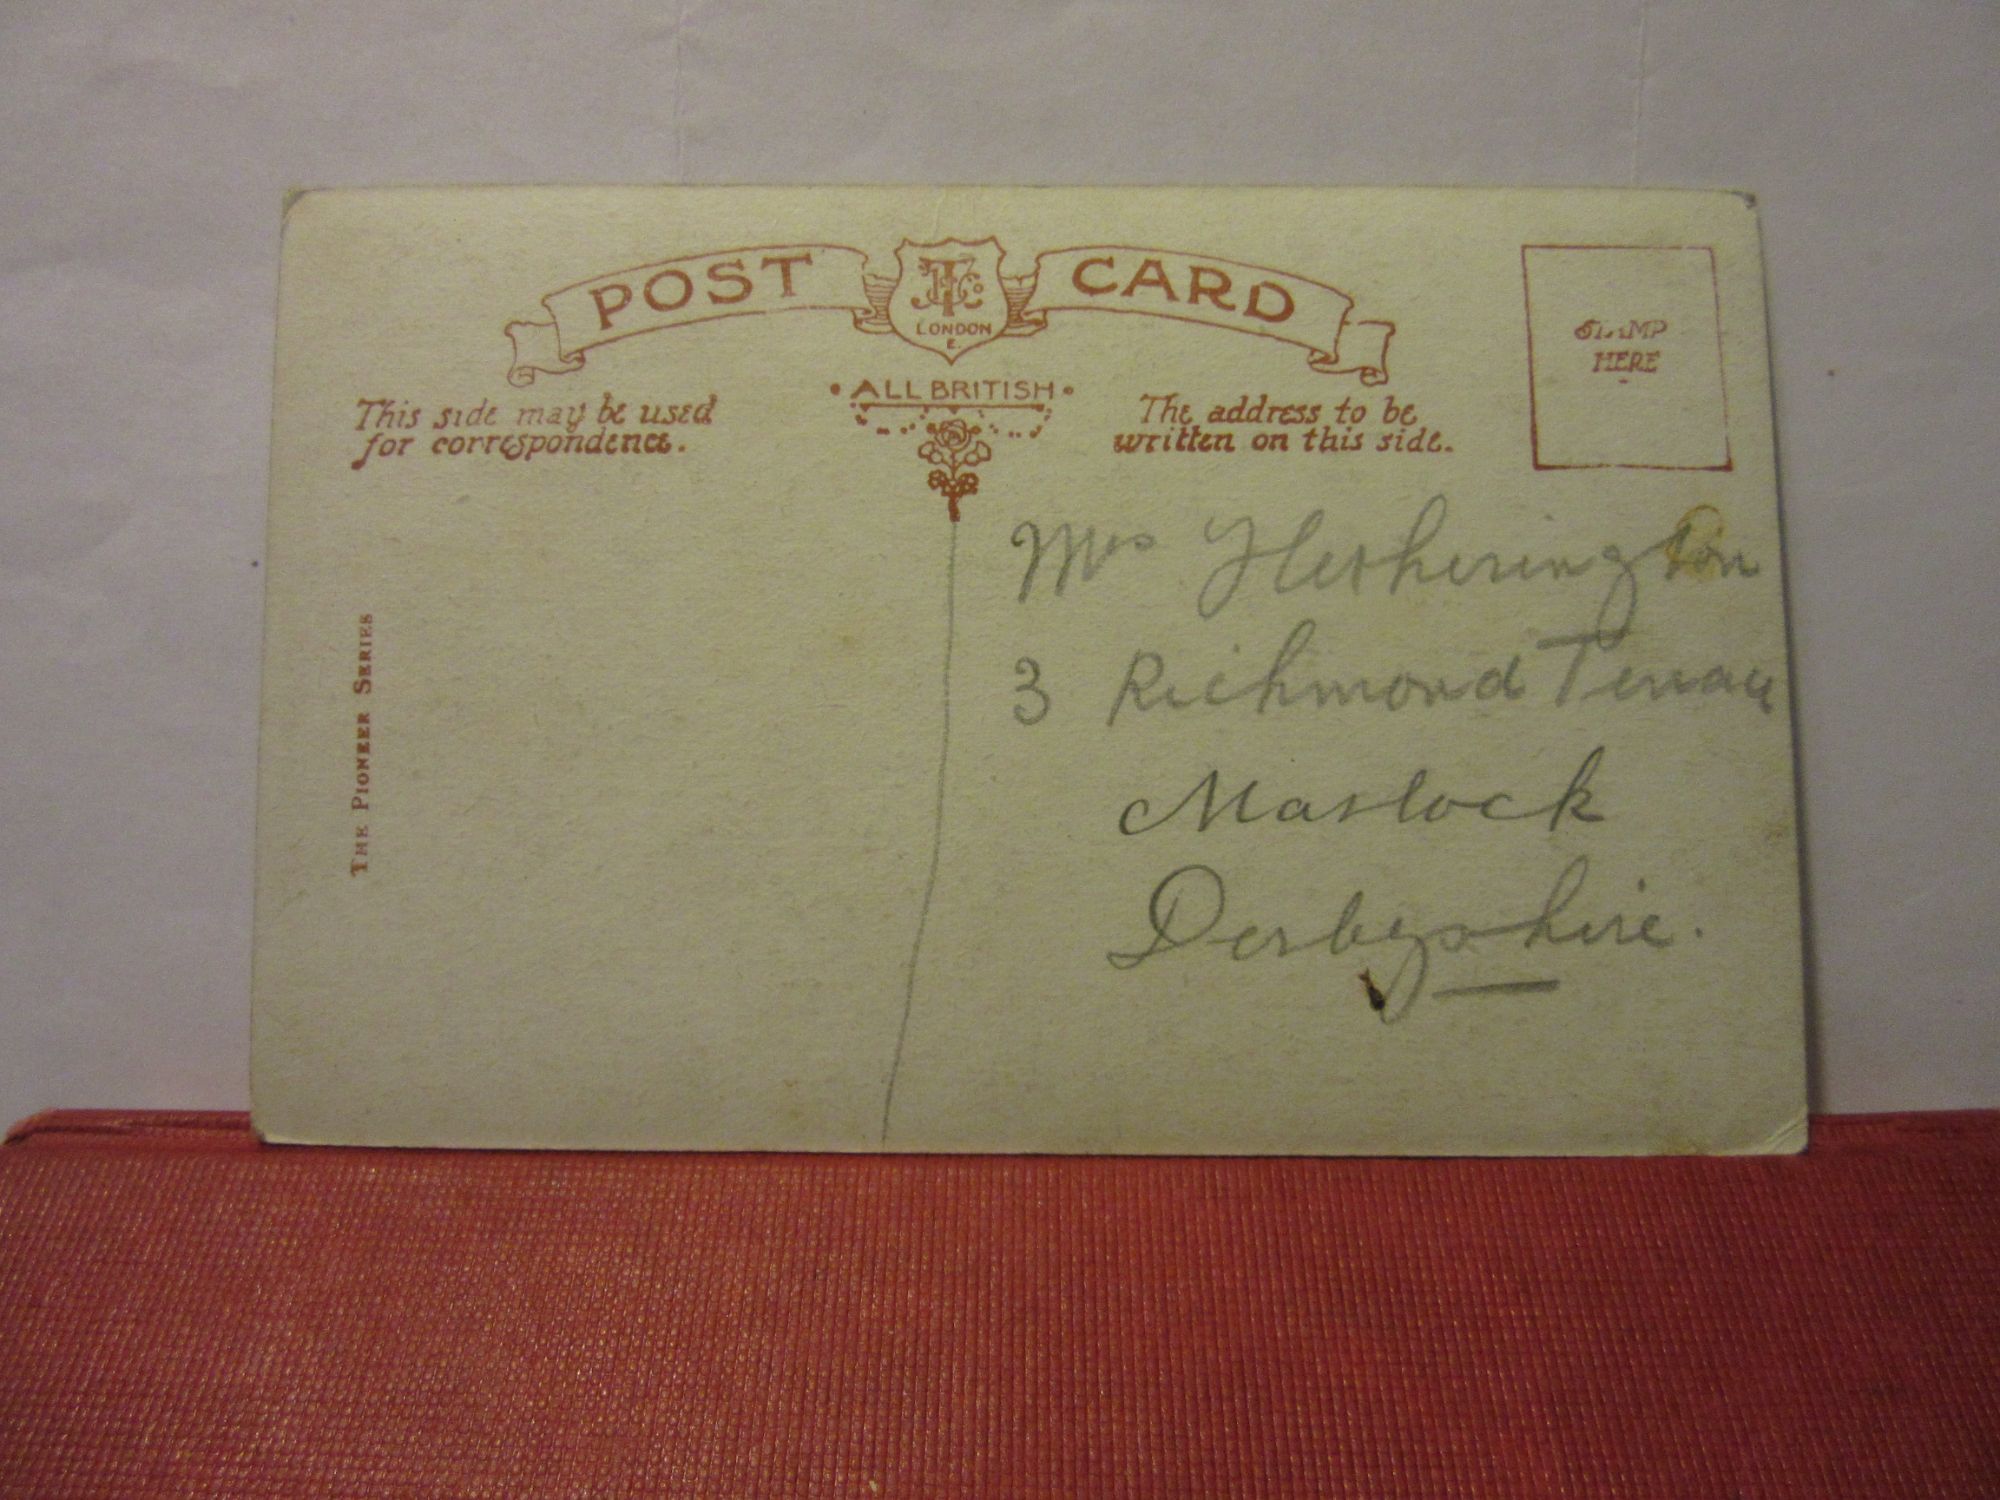 POST CARD
LONDON
E.
ALL BRITISH
This side may be used
for correspondence.
The address to be
written on this side.
STAMP
HERE
THE PIONEER SERIES
Mrs Hetherington
3 Richmond Terrace
Matlock
Derbyshire.